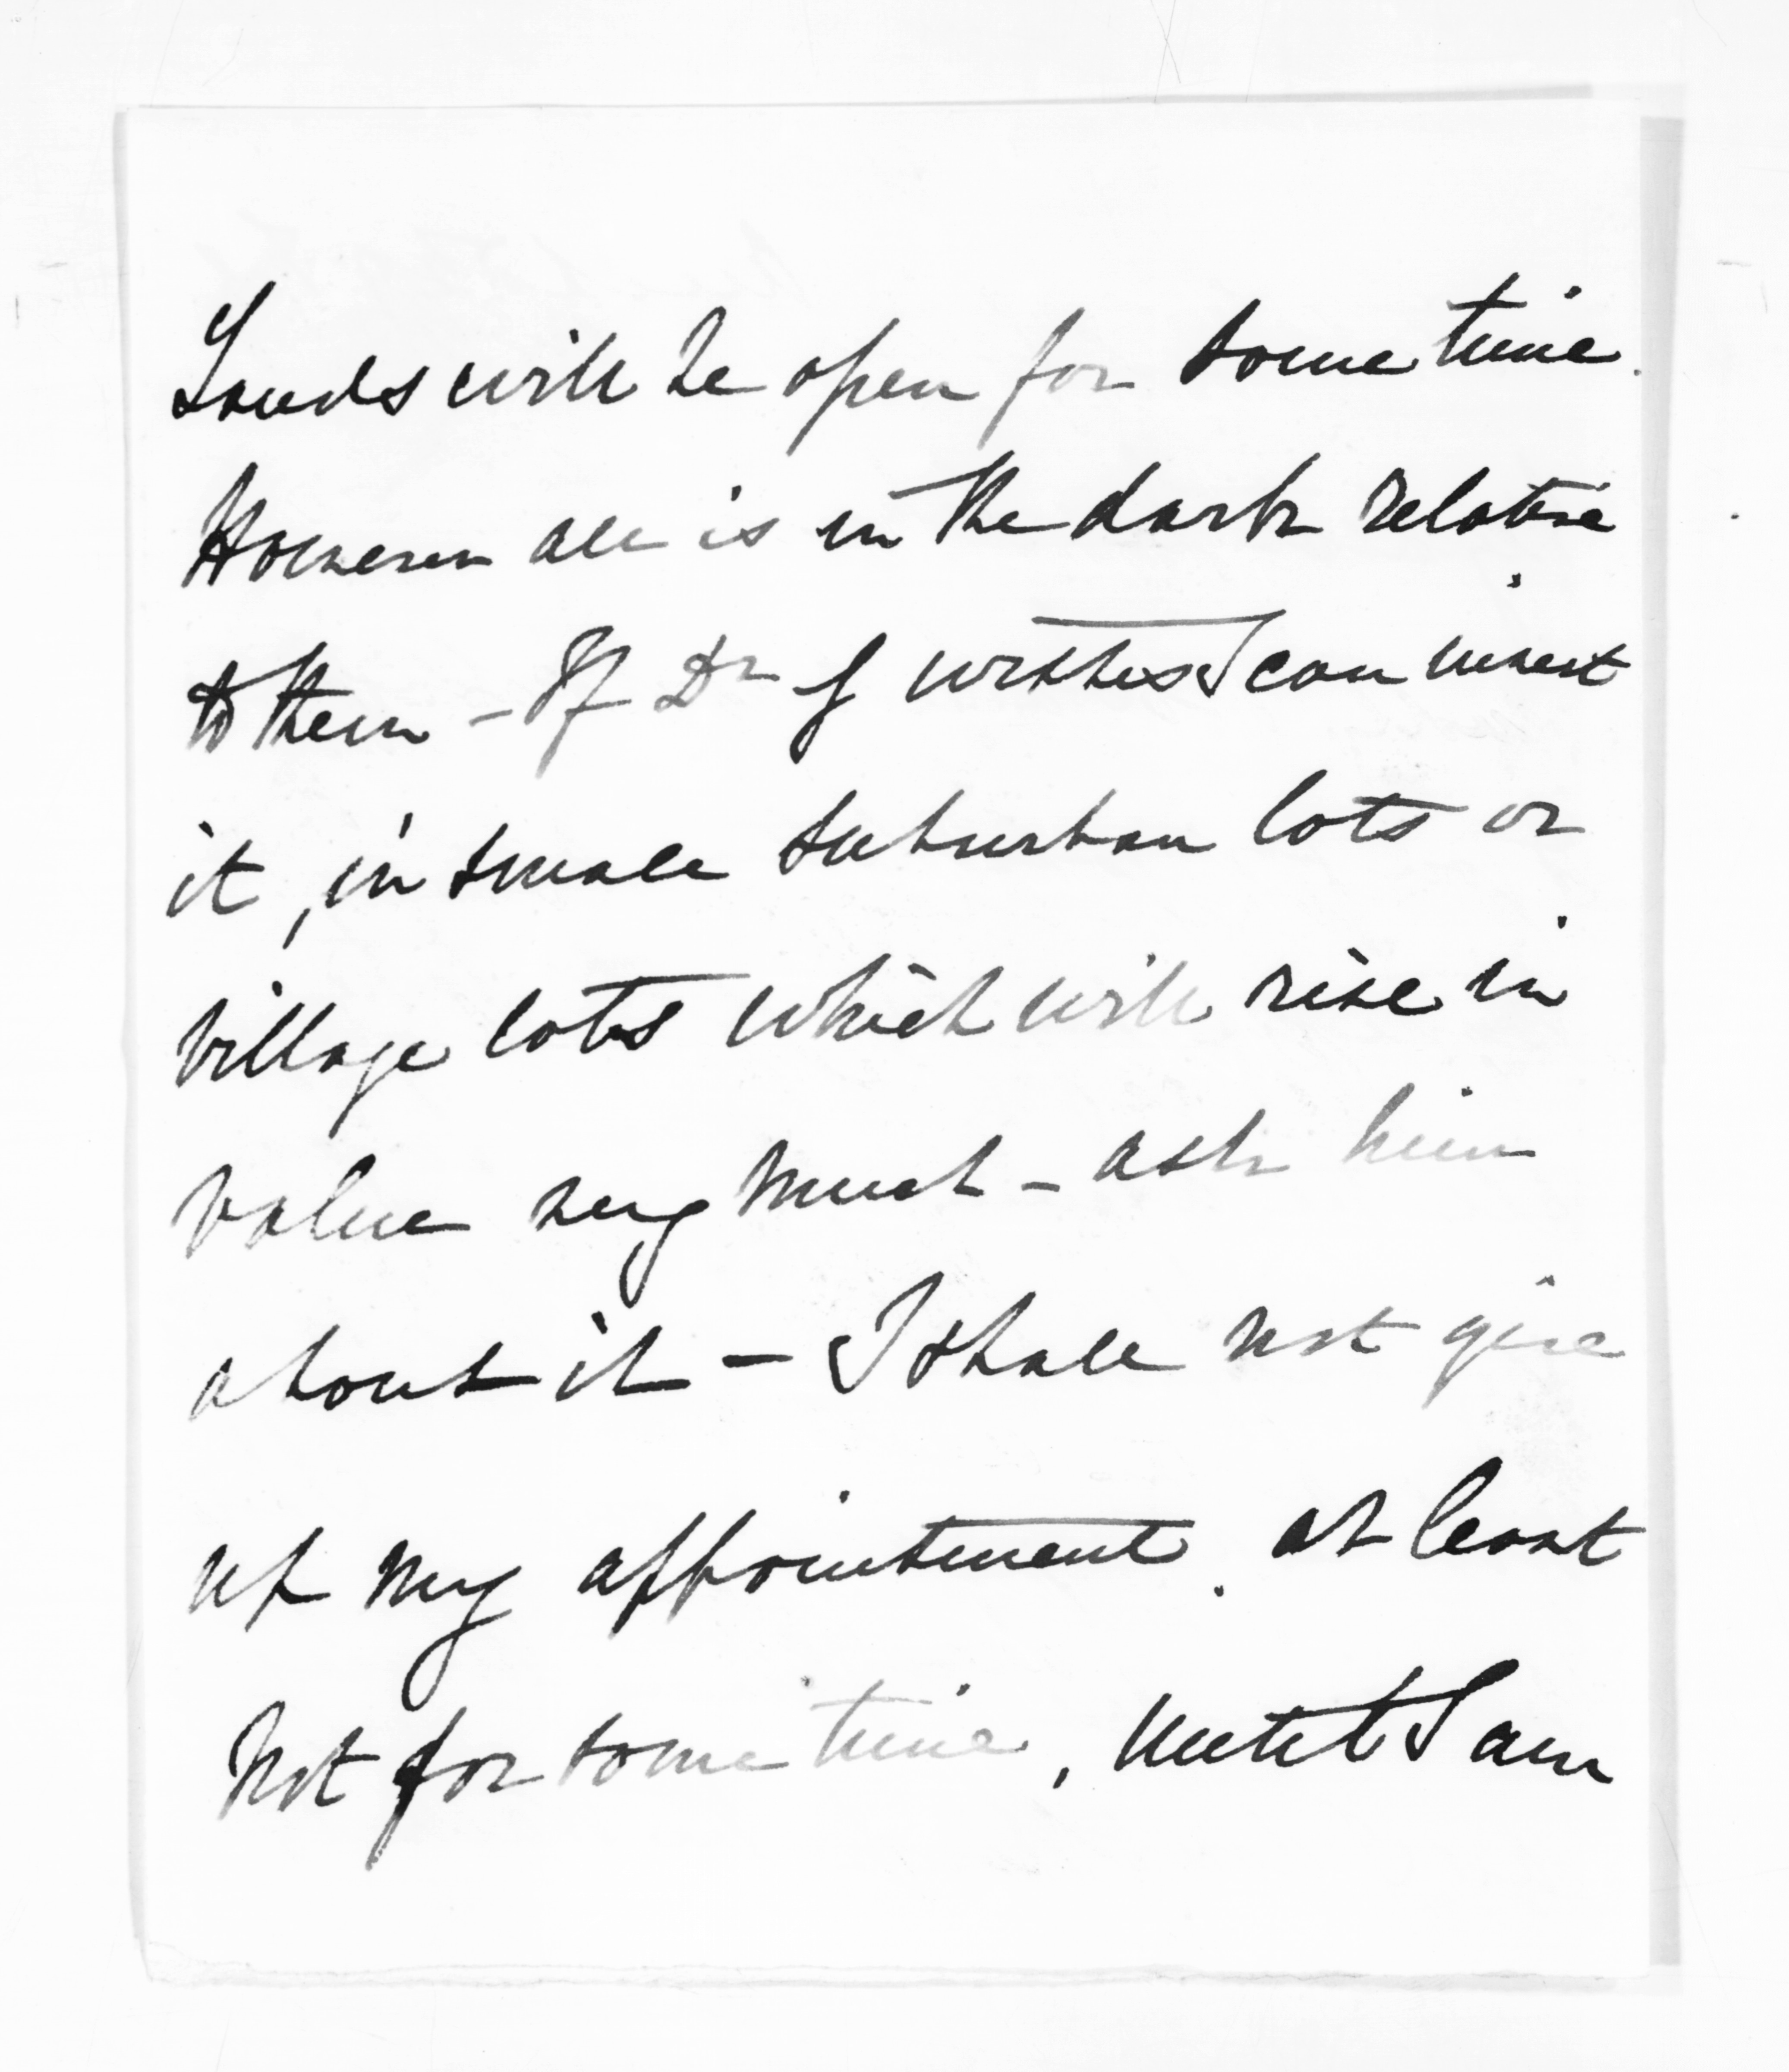 Lands will be open for some time.
However all is in the dark relative
to them - If Dr J wishes I can invest
it, in small suburban lots or
village lots which will rise in
value very much - ask him
about it - I shall not give
up my appointment. at least
not for some time, until I am